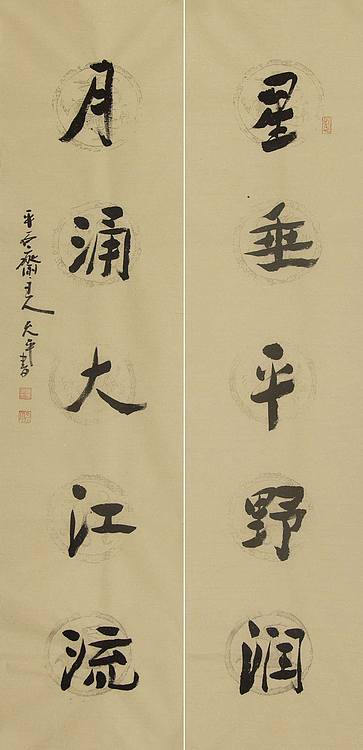 星垂平野濶
月涌大江流
齋主人天平書